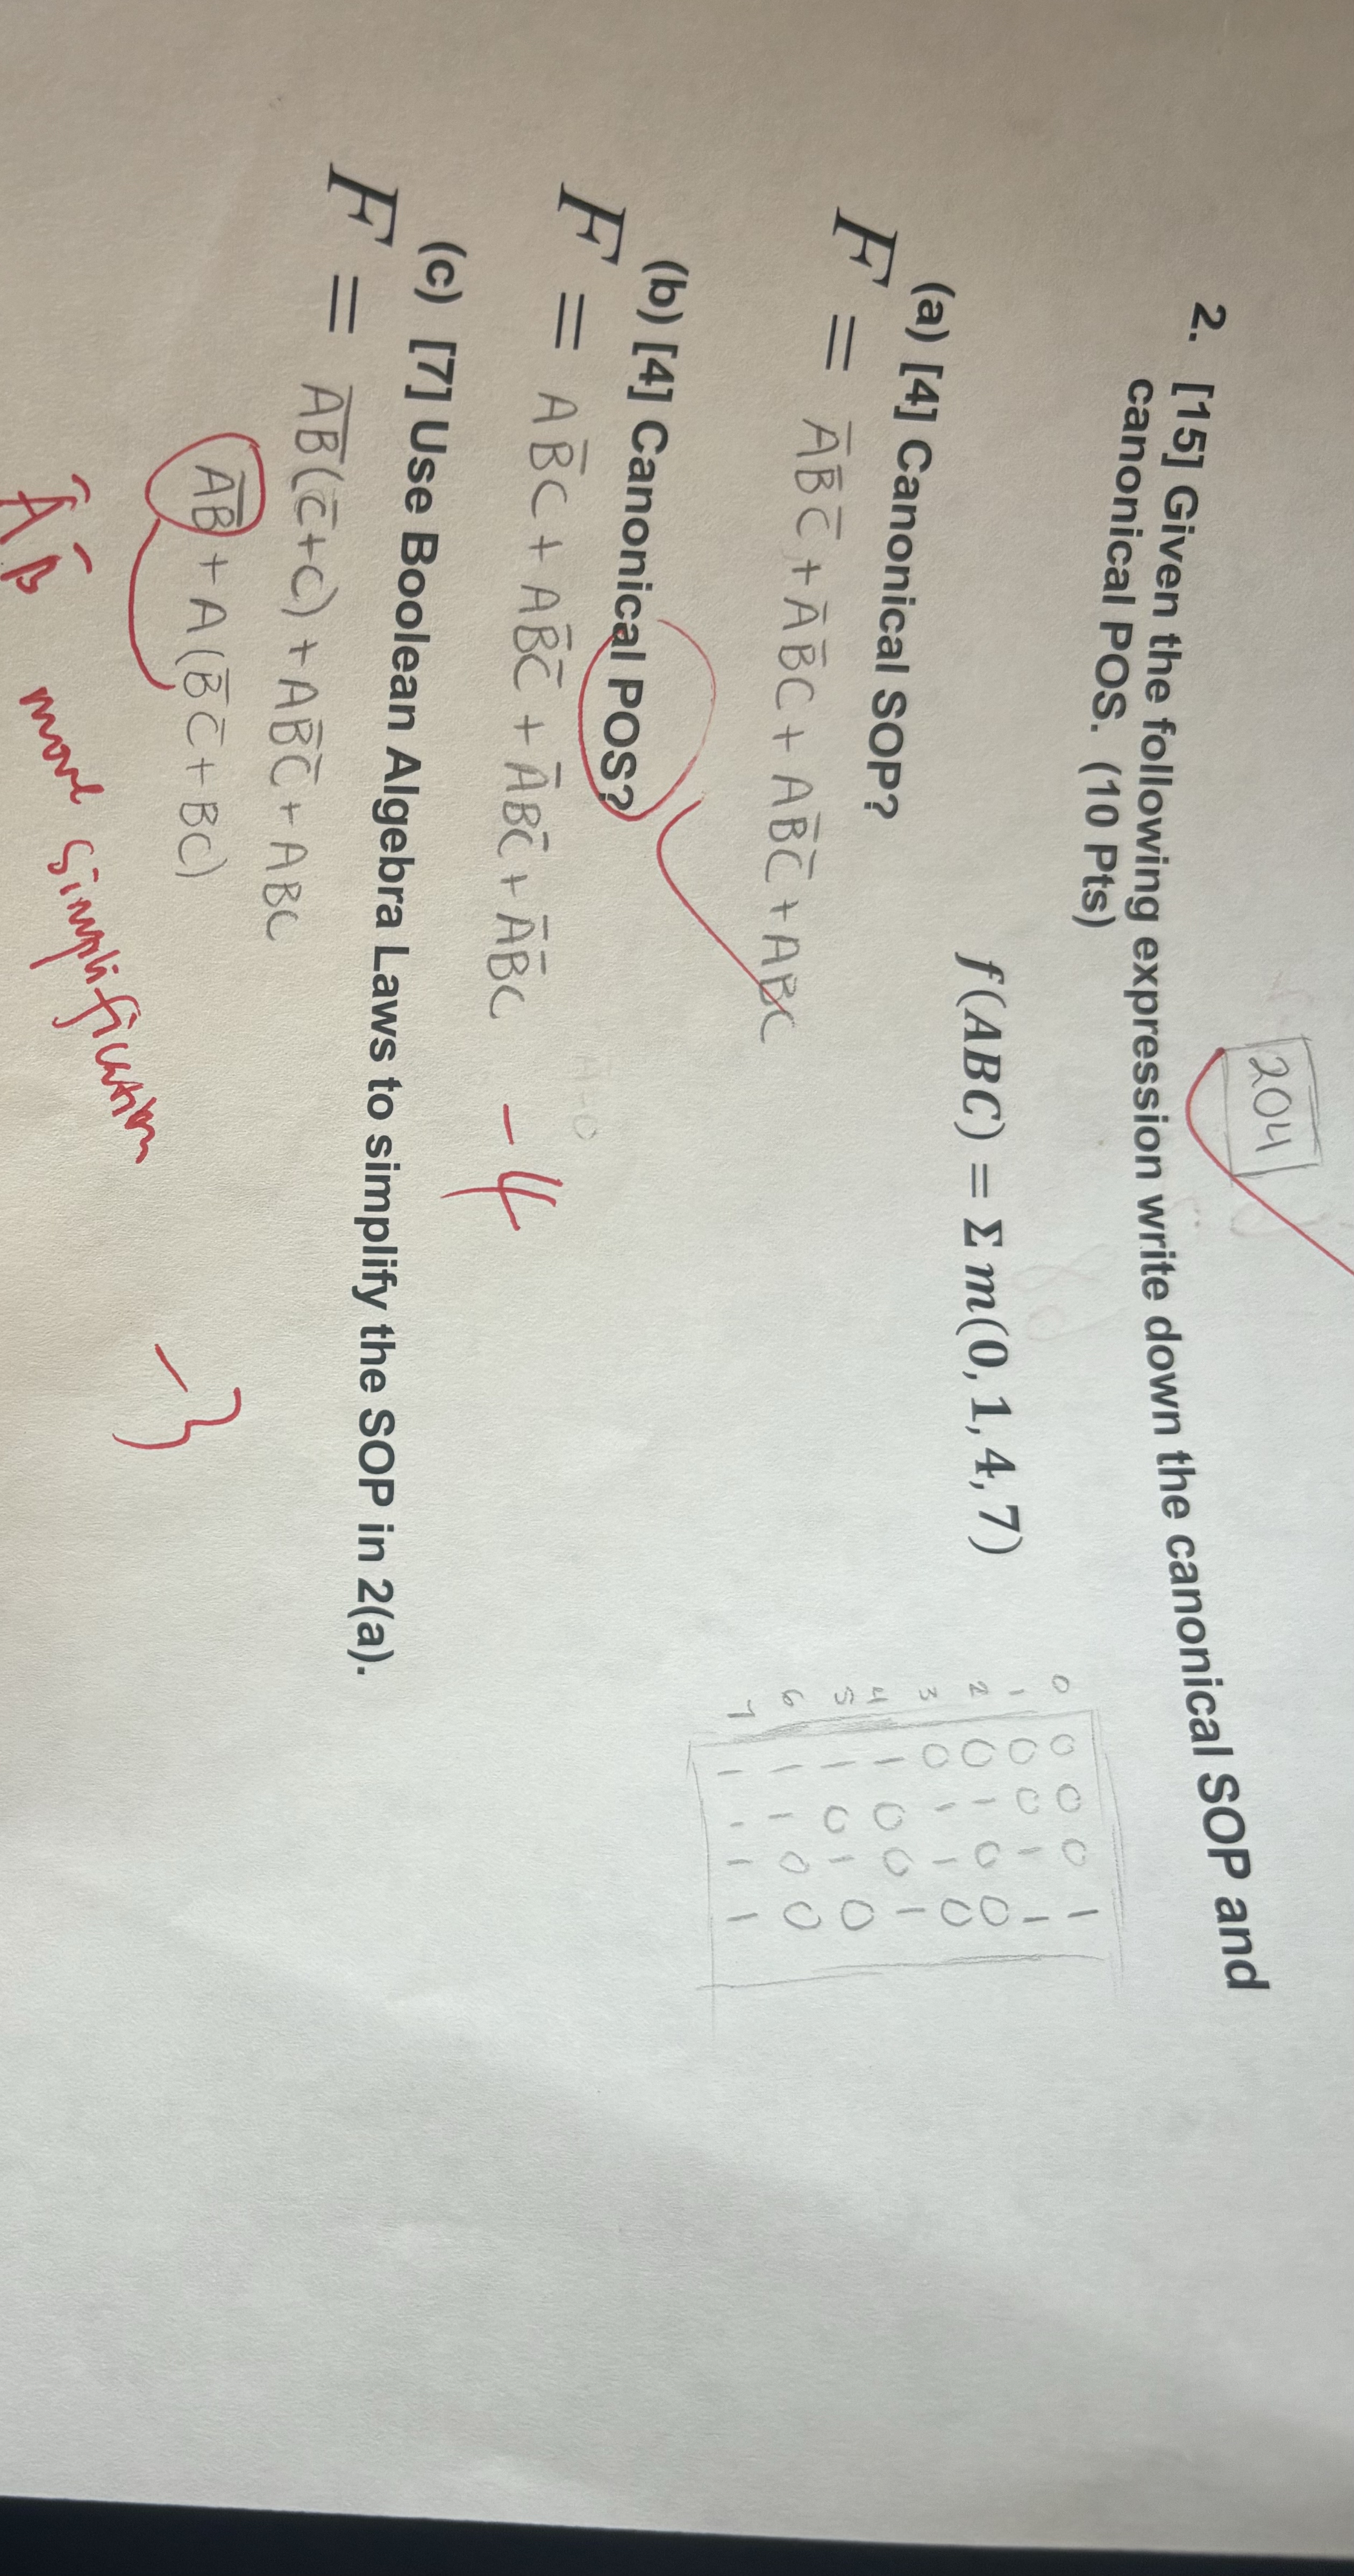 204
2. [15] Given the following expression write down the canonical SOP and
canonical POS. (10 Pts)
f(ABC) = Σ m(0, 1, 4, 7)
0 0 0 0 1
1 0 0 1 1
2 0 1 0 0
3 0 1 1 0
4 1 0 0 1
5 1 0 1 0
6 1 1 0 0
7 1 1 1 1
(a) [4] Canonical SOP?
F = A̅B̅C̅ + A̅B̅C + AB̅C̅ + ABC
(b) [4] Canonical POS?
F = AB̅C + AB̅C̅ + A̅B̅C̅ + A̅B̅C
-4
(c) [7] Use Boolean Algebra Laws to simplify the SOP in 2(a).
F = A̅B̅(C̅+C) + AB̅C̅ + ABC
A̅B̅ + A(B̅C̅ + BC)
-3
A̅ B̅ more simplification